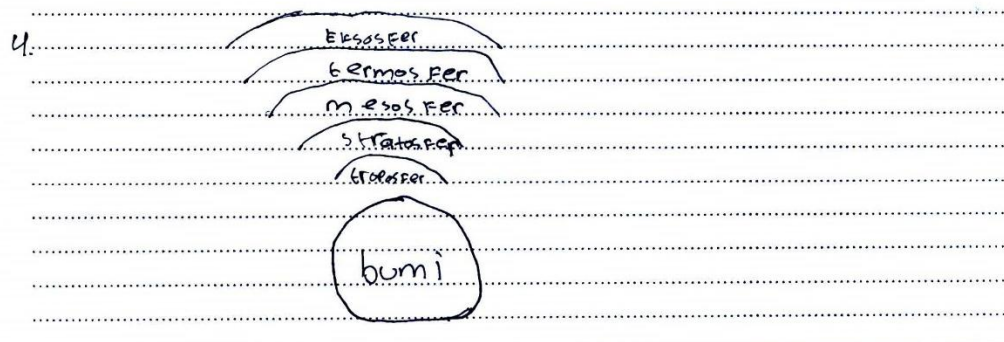 4. Eksosfer
termosfer
mesosfer
stratosfer
troposfer
bumi